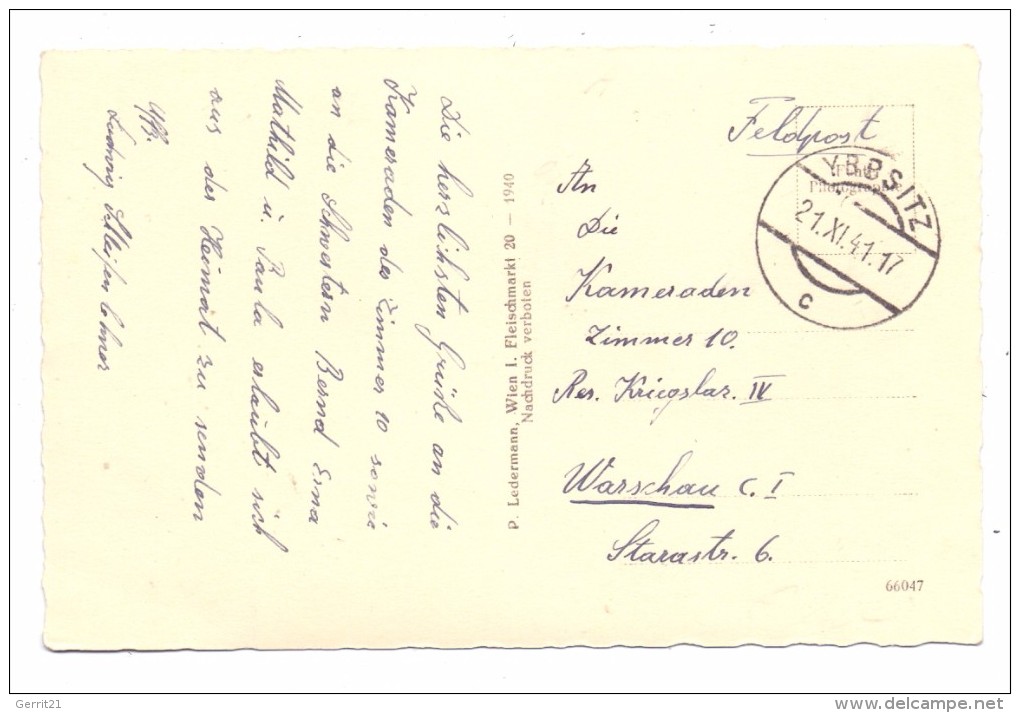 Feldpost
YBBSITZ
21.XI.41.17
c
An
Die
Kameraden
Zimmer 10.
Res. Kriegslaz. IV
Warschau C. I
Starastr. 6.
66047
P. Ledermann, Wien I. Fleischmarkt 20 — 1940
Nachdruck verboten
Die herzlichsten Grüße an die
Kameraden des Zimmer 10 sowie
an die Schwestern Bernd Erna
Mathild u. Paula erlaubt sich
aus der Heimat zu senden
Uffz.
Ludwig Schleifenlehner
Gerrit21
delcampe.net